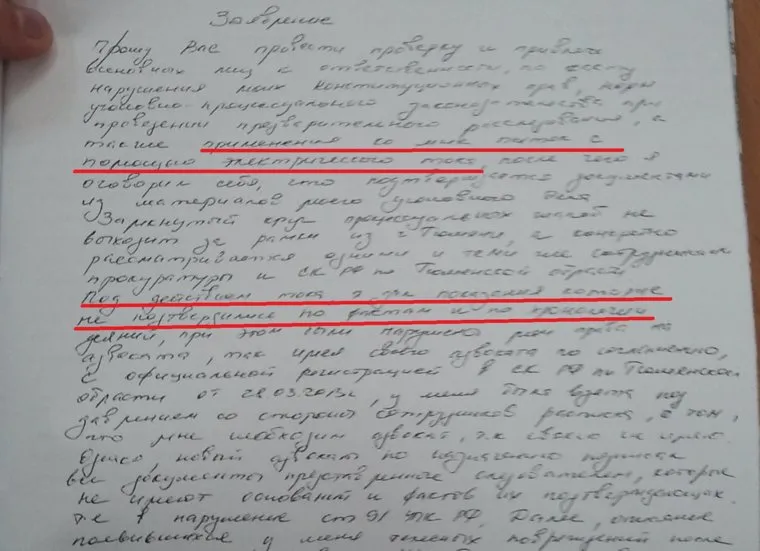 Заявление
Прошу Вас провести проверку и привлечь
виновных лиц к ответственности, по факту
нарушения моих Конституционных прав, норм
уголовно-процессуального законодательства при
проведении предварительного расследования, а
также применения ко мне пыток с
помощью электрического тока, после чего я
оговорил себя, что подтверждается документами
из материалов моего уголовного дела
Замкнутый круг процессуальных не
выходит за рамки из г Тюмени, а конкретно
рассматривается одними и теми же сотрудниками
прокуратуры и СК РФ по Тюменской области
Под действием тока я дал показания которые
не подтвердились по фактам и по хронологии
деяний, при этом были нарушено моё права на
адвоката, так имея своего адвоката по соглашению,
с официальной регистрацией в СК РФ по Тюменской
области от 28.03.2013г, у меня была взята под
давлением со стороны сотрудников расписка, о том,
что мне необходим адвокат, т.к своего не имею.
Однако новый адвокат по назначению подписал
все документы представленные следователем, которые
не имеют оснований и фактов их подтверждающих.
т.е в нарушение ст 91 УПК РФ. Далее,
появившихся у меня телесных повреждений после